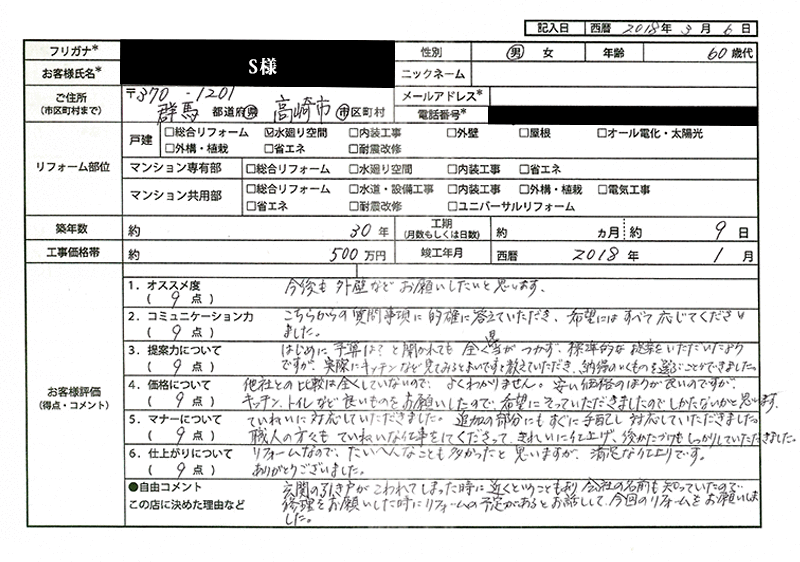 記入日 西暦 2018年 3月 6日
フリガナ* S様 性別 男 女 年齢 60歳代
お客様氏名* ニックネーム
ご住所 (市区町村まで) 〒370-1201 群馬 都道府県 高崎市 市区町村 メールアドレス*
電話番号*
リフォーム部位 戸建 □総合リフォーム ☑水廻り空間 □内装工事 □外壁 □屋根 □オール電化・太陽光
□外構・植栽 □省エネ □耐震改修
マンション専有部 □総合リフォーム □水廻り空間 □内装工事 □省エネ
マンション共用部 □総合リフォーム □水道・設備工事 □内装工事 □外構・植栽 □電気工事
□省エネ □耐震改修 □ユニバーサルリフォーム
築年数 約 30年 工期 (月数もしくは日数) 約 カ月 約 9日
工事価格帯 約 500万円 竣工年月 西暦 2018年 1月
お客様評価 (得点・コメント)
1．オススメ度 (9点) 今後も外壁などお願いしたいと思います．
2．コミュニケーション力 (9点) こちらからの質問事項に的確に答えていただき、希望にはすべて応じてください
ました。
3．提案力について (9点) はじめに予算は?と聞かれても全く見当がつかず、標準的な提案をいただいたよう
ですが、実際にキッチンなど見てみるとよいですと教えていただき、納得のいくものを選ぶことができました。
4．価格について (9点) 他社との比較は全くしていないので、よくわかりません。安い価格のほうが良いのですが、
キッチン、トイレなど良いものをお願いしたので、希望にそっていただきましたのでしかたないかと思います．
5．マナーについて (9点) ていねいに対応していただきました。追加の部分にもすぐに手配し対応していただきました。
職人の方々もていねいな仕事をしてくださって、きれいに仕上げ、後かたづけもしっかりしていただきました。
6．仕上がりについて (9点) リフォームなので、たいへんなことも多かったと思いますが、満足な仕上りです。
ありがとうございました。
●自由コメント この店に決めた理由など 玄関の引き戸がこわれてしまった時に近くということもあり会社の名前も知っていたので
修理をお願いした時にリフォームの予定があるとお話しして、今回のリフォームをお願いしま
した。